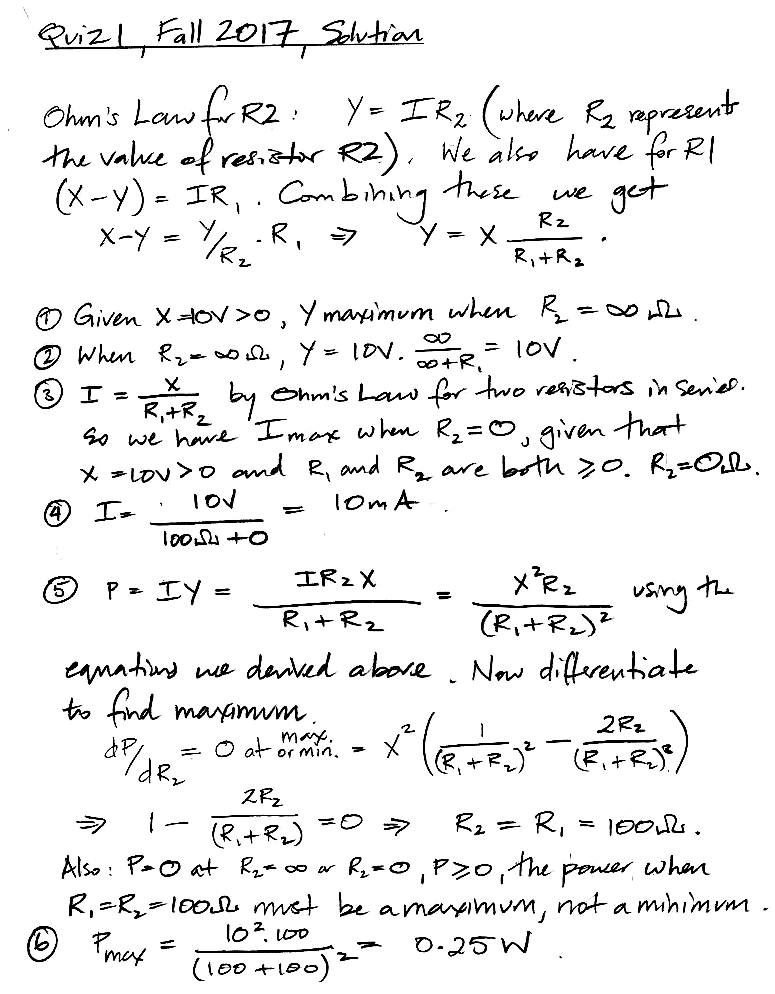 Quiz 1, Fall 2017, Solution
Ohm's Law for R2: Y = IR₂ (where R₂ represents
the value of resistor R2). We also have for R1
(X-Y) = IR₁. Combining these we get
X-Y = Y/R₂ · R₁ ⇒ Y = X R₂/(R₁+R₂).
① Given X=10V>0, Y maximum when R₂ = ∞Ω.
② When R₂=∞Ω, Y = 10V. ∞/(∞+R₁) = 10V.
③ I = X/(R₁+R₂) by Ohm's Law for two resistors in series.
So we have Imax when R₂=0, given that
X=10V>0 and R₁ and R₂ are both ≥0. R₂=0Ω.
④ I = 10V/(100Ω+0) = 10mA.
⑤ P = IY = IR₂X/(R₁+R₂) = X²R₂/(R₁+R₂)² using the
equations we derived above. Now differentiate
to find maximum.
dP/dR₂ = 0 at max. or min. = X² (1/(R₁+R₂)² − 2R₂/(R₁+R₂)³)
⇒ 1 − 2R₂/(R₁+R₂) = 0 ⇒ R₂ = R₁ = 100Ω.
Also: P=0 at R₂=∞ or R₂=0, P≥0, the power when
R₁=R₂=100Ω must be a maximum, not a minimum.
⑥ Pmax = 10².100/(100+100)² = 0.25W.